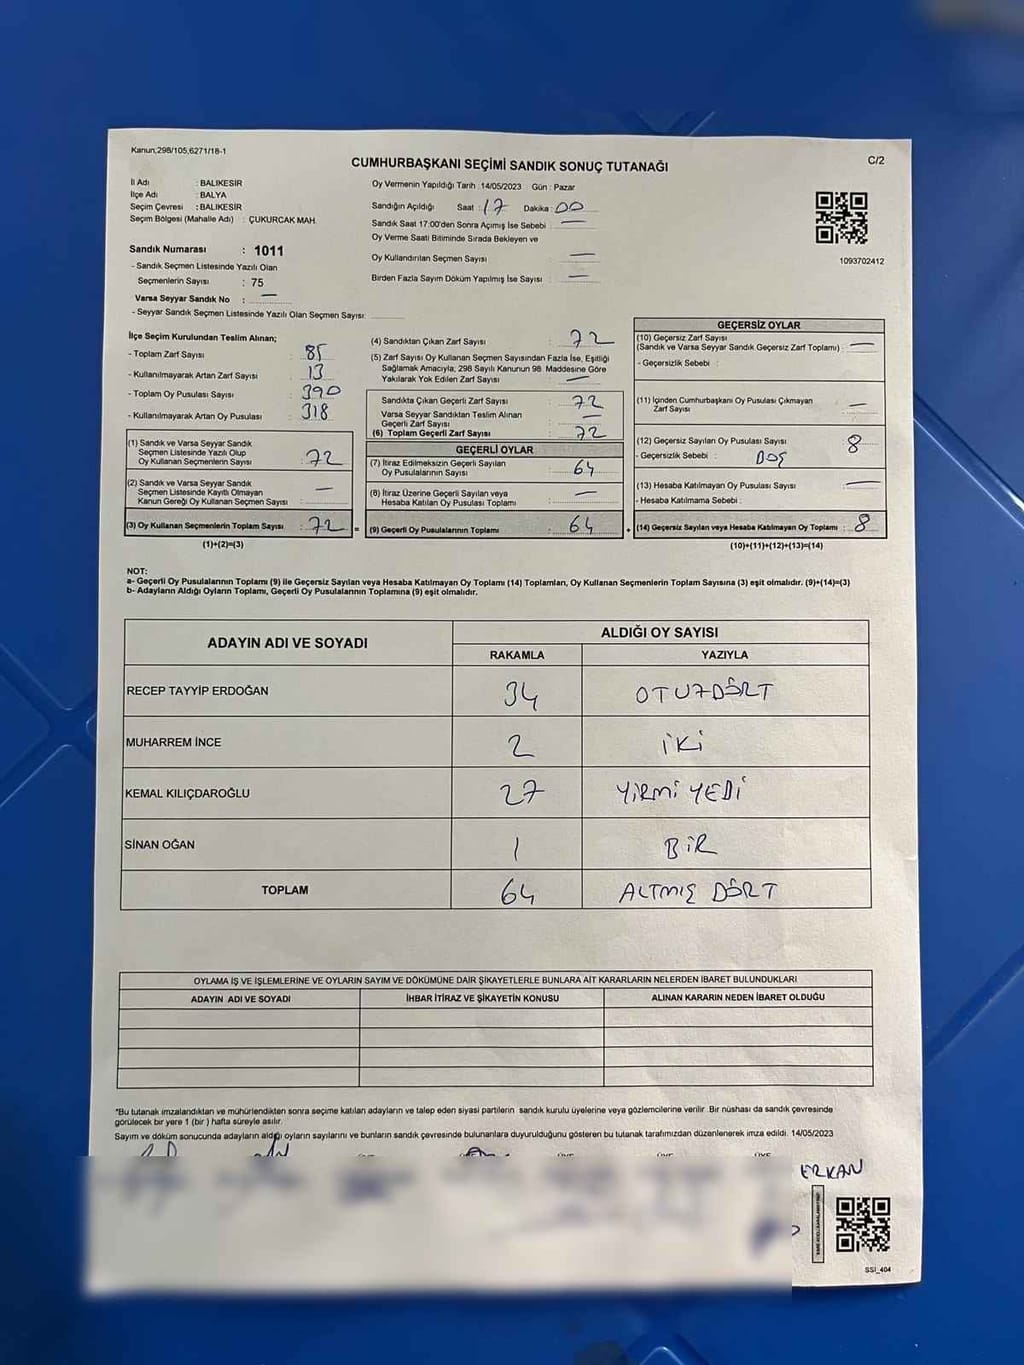 Kanun;298/105,6271/18-1
CUMHURBAŞKANI SEÇİMİ SANDIK SONUÇ TUTANAĞI
C/2
İl Adı : BALIKESİR
İlçe Adı : BALYA
Seçim Çevresi : BALIKESİR
Seçim Bölgesi (Mahalle Adı) : ÇUKURCAK MAH.
Sandık Numarası : 1011
- Sandık Seçmen Listesinde Yazılı Olan
Seçmenlerin Sayısı : 75
Varsa Seyyar Sandık No : —
- Seyyar Sandık Seçmen Listesinde Yazılı Olan Seçmen Sayısı:
Oy Vermenin Yapıldığı Tarih :14/05/2023 Gün : Pazar
Sandığın Açıldığı Saat : 17 Dakika : 00
Sandık Saat 17:00'den Sonra Açımış İse Sebebi : —
Oy Verme Saati Bitiminde Sırada Bekleyen ve
Oy Kullandırılan Seçmen Sayısı : —
Birden Fazla Sayım Döküm Yapılmış İse Sayısı : —
1093702412
İlçe Seçim Kurulundan Teslim Alınan;
- Toplam Zarf Sayısı : 85
- Kullanılmayarak Artan Zarf Sayısı : 13
- Toplam Oy Pusulası Sayısı : 390
- Kullanılmayarak Artan Oy Pusulası : 318
(1) Sandık ve Varsa Seyyar Sandık
Seçmen Listesinde Yazılı Olup
Oy Kullanan Seçmenlerin Sayısı : 72
(2) Sandık ve Varsa Seyyar Sandık
Seçmen Listesinde Kayıtlı Olmayan
Kanun Gereği Oy Kullanan Seçmen Sayısı : —
(3) Oy Kullanan Seçmenlerin Toplam Sayısı : 72 =
(1)+(2)=(3)
(4) Sandıktan Çıkan Zarf Sayısı : 72
(5) Zarf Sayısı Oy Kullanan Seçmen Sayısından Fazla İse, Eşitliği
Sağlamak Amacıyla; 298 Sayılı Kanunun 98. Maddesine Göre
Yakılarak Yok Edilen Zarf Sayısı : —
Sandıkta Çıkan Geçerli Zarf Sayısı : 72
Varsa Seyyar Sandıktan Teslim Alınan
Geçerli Zarf Sayısı : —
(6) Toplam Geçerli Zarf Sayısı : 72
GEÇERLİ OYLAR
(7) İtiraz Edilmeksizin Geçerli Sayılan
Oy Pusulalarının Sayısı : 64
(8) İtiraz Üzerine Geçerli Sayılan veya
Hesaba Katılan Oy Pusulası Toplamı : —
(9) Geçerli Oy Pusulalarının Toplamı : 64 +
GEÇERSİZ OYLAR
(10) Geçersiz Zarf Sayısı
(Sandık ve Varsa Seyyar Sandık Geçersiz Zarf Toplamı) : —
- Geçersizlik Sebebi :
(11) İçinden Cumhurbaşkanı Oy Pusulası Çıkmayan
Zarf Sayısı : —
(12) Geçersiz Sayılan Oy Pusulası Sayısı : 8
- Geçersizlik Sebebi : BOŞ
(13) Hesaba Katılmayan Oy Pusulası Sayısı : —
- Hesaba Katılmama Sebebi :
(14) Geçersiz Sayılan veya Hesaba Katılmayan Oy Toplamı : 8
(10)+(11)+(12)+(13)=(14)
NOT:
a- Geçerli Oy Pusulalarının Toplamı (9) ile Geçersiz Sayılan veya Hesaba Katılmayan Oy Toplamı (14) Toplamları, Oy Kullanan Seçmenlerin Toplam Sayısına (3) eşit olmalıdır. (9)+(14)=(3)
b- Adayların Aldığı Oyların Toplamı, Geçerli Oy Pusulalarının Toplamına (9) eşit olmalıdır.
ADAYIN ADI VE SOYADI ALDIĞI OY SAYISI
RAKAMLA YAZIYLA
RECEP TAYYİP ERDOĞAN 34 OTUZDÖRT
MUHARREM İNCE 2 İKİ
KEMAL KILIÇDAROĞLU 27 YİRMİ YEDİ
SİNAN OĞAN 1 BİR
TOPLAM 64 ALTMIŞ DÖRT
OYLAMA İŞ VE İŞLEMLERİNE VE OYLARIN SAYIM VE DÖKÜMÜNE DAİR ŞİKAYETLERLE BUNLARA AİT KARARLARIN NELERDEN İBARET BULUNDUKLARI
ADAYIN ADI VE SOYADI İHBAR İTİRAZ VE ŞİKAYETİN KONUSU ALINAN KARARIN NEDEN İBARET OLDUĞU
*Bu tutanak imzalandıktan ve mühürlendikten sonra seçime katılan adayların ve talep eden siyasi partilerin sandık kurulu üyelerine veya gözlemcilerine verilir. Bir nüshası da sandık çevresinde
görülecek bir yere 1 (bir ) hafta süreyle asılır.
Sayım ve döküm sonucunda adayların aldığı oyların sayılarını ve bunların sandık çevresinde bulunanlara duyurulduğunu gösteren bu tutanak tarafımızdan düzenlenerek imza edildi. 14/05/2023
ERKAN
SSİ_404